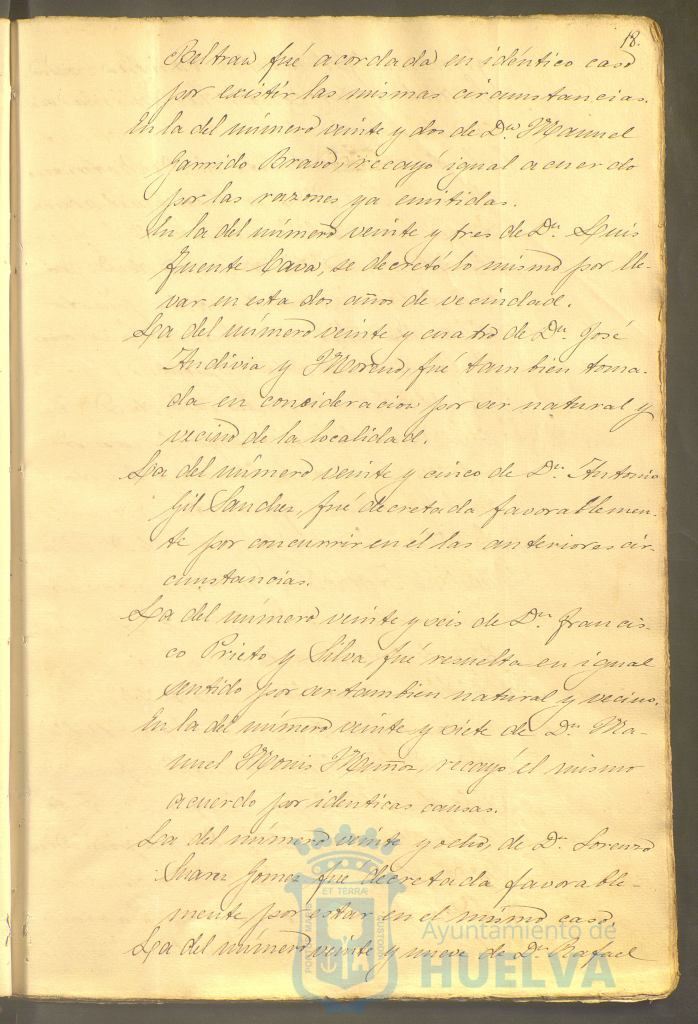 18.
Beltran fué acordada en idéntico caso
por existir las mismas circunstancias.
En la del número veinte y dos de Dn. Manuel
Garrido Bravo, recayó igual acuerdo
por las razones ya emitidas.
En la del número veinte y tres de Dn. Luis
Fuente Cava, se decretó lo mismo por lle-
var en esta dos años de vecindad.
La del número veinte y cuatro de Dn. José
Andivia y Moreno, fué tambien toma-
da en consideracion por ser natural y
vecino de la localidad.
La del número veinte y cinco de Dn. Antonio
Gil Sanchez, fué decretada favorablemen-
te por concurrir en él las anteriores cir-
cunstancias.
La del número veinte y seis de Dn. Francis-
co Prieto y Silva, fué resuelta en igual
sentido por ser tambien natural y vecino.
En la del número veinte y siete de Dn. Ma-
nuel Monis Muñoz, recayó el mismo
acuerdo por identicas causas.
La del número veinte y ocho, de Dn. Lorenzo
Suarez Gomez fué decretada favorable-
mente por estar en el mismo caso.
La del número veinte y nueve de Dn. Rafael
ET TERRÆ
PORTUS MARIS
CUSTODIA
Ayuntamiento de
HUELVA